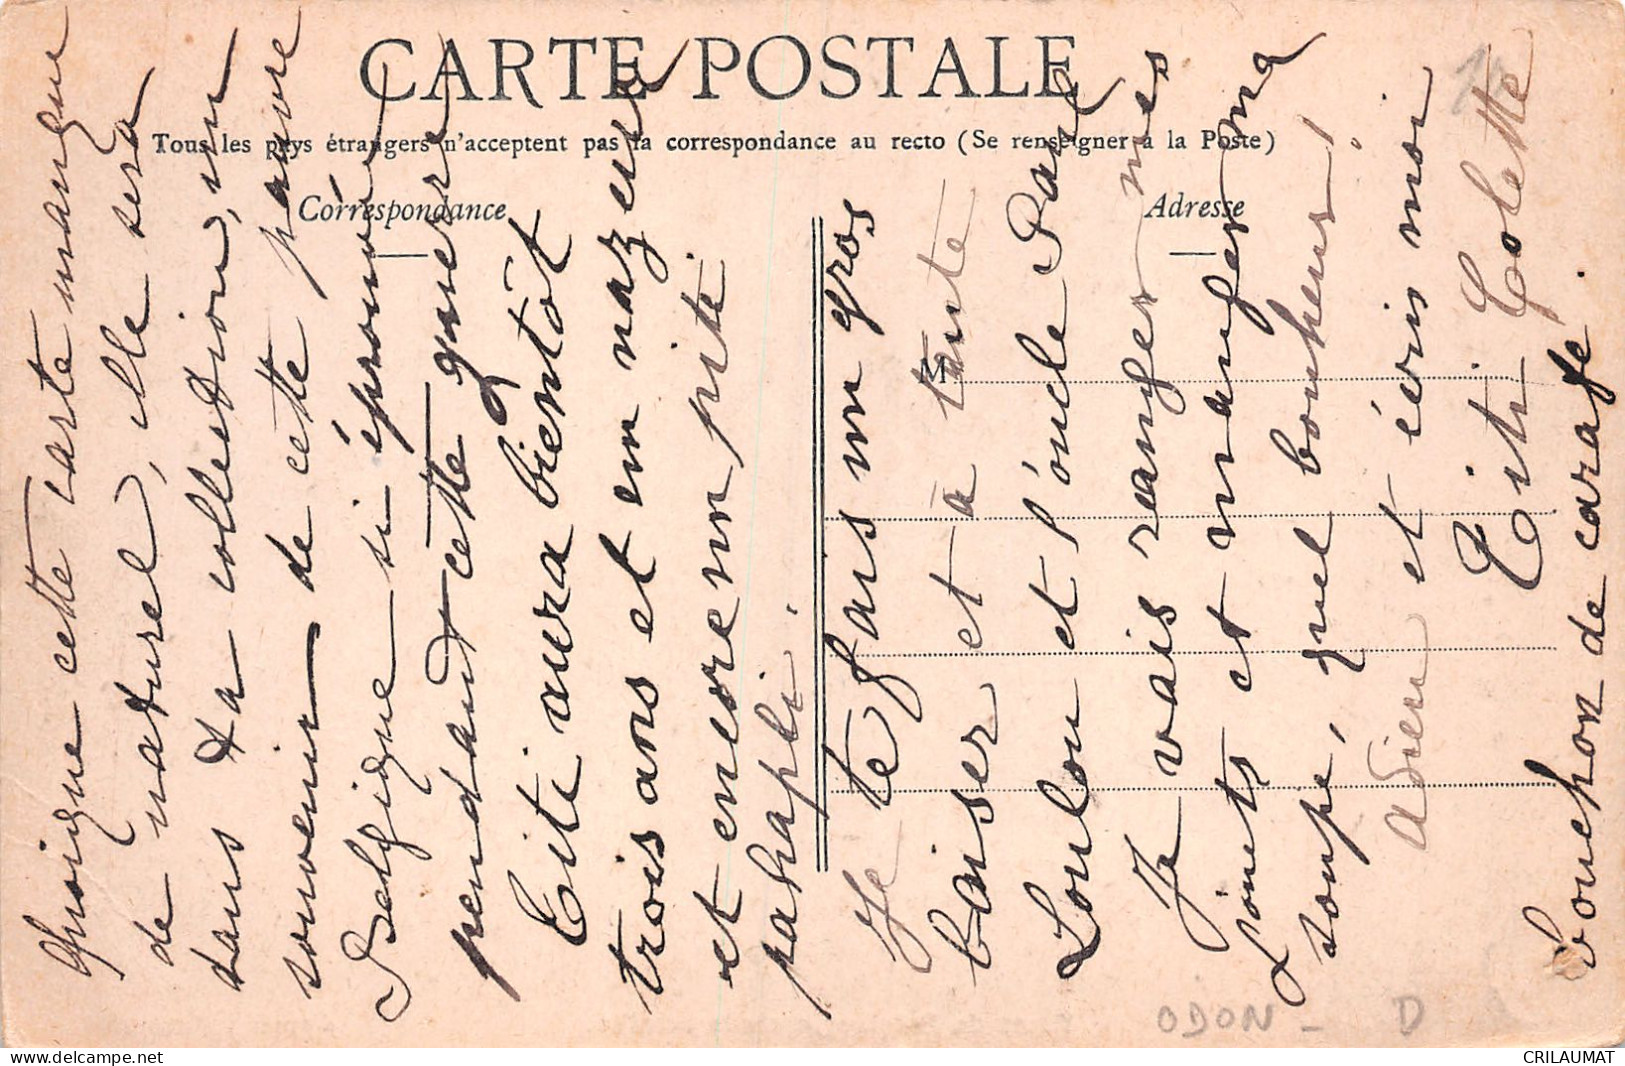 CARTE POSTALE
Tous les pays étrangers n'acceptent pas la correspondance au recto (Se renseigner à la Poste)
Correspondance
Adresse
Quoique cette carte manque
de naturel, elle sera
dans ta collection, un
souvenir de cette pauvre
Belgique si éprouvée
pendant cette guerre
Titi aura bientôt
trois ans et em nazeur
et encore rm pité.
pahapli.
Je te fais un gros
baiser et à tante
Loulou et l'oncle Paul
Je vais ranger mes
jouets et manger ma
soupe, quel bonheur!
Adieu et écris moi
Titi Colette
Bouchon de carafe.
ODON - D
CRILAUMAT